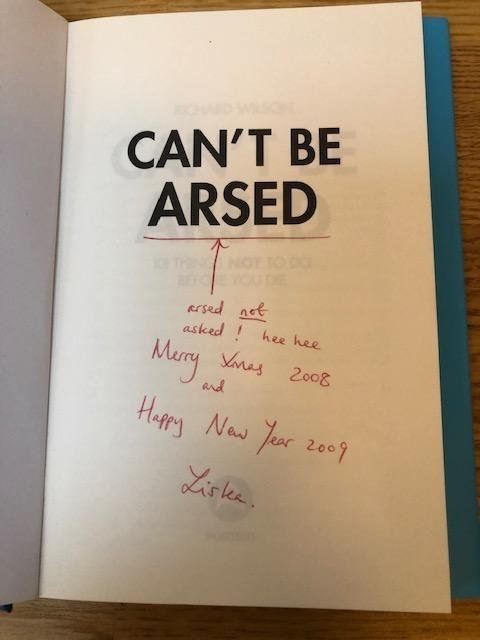 RICHARD WILSON
CAN'T BE
ARSED
101 THINGS NOT TO DO
BEFORE YOU DIE
arsed not
asked! hee hee
Merry Xmas 2008
and
Happy New Year 2009
Liska.
PORTICO